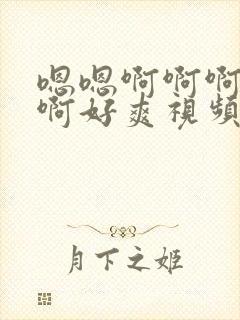 嗯嗯啊啊啊
啊好爽視頻
月下之姬